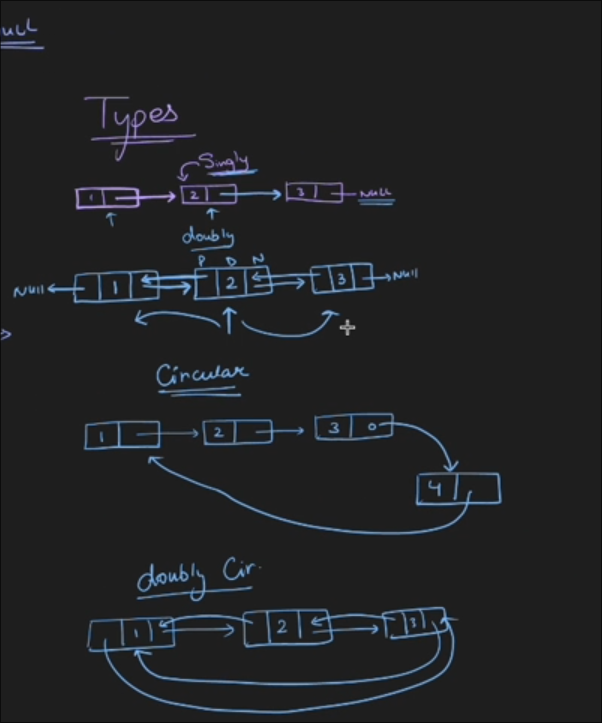 NULL
Types
Singly
1 2 3 NULL
doubly
P D N
NULL 1 2 3 NULL
Circular
1 2 3
4
doubly Cir.
1 2 3